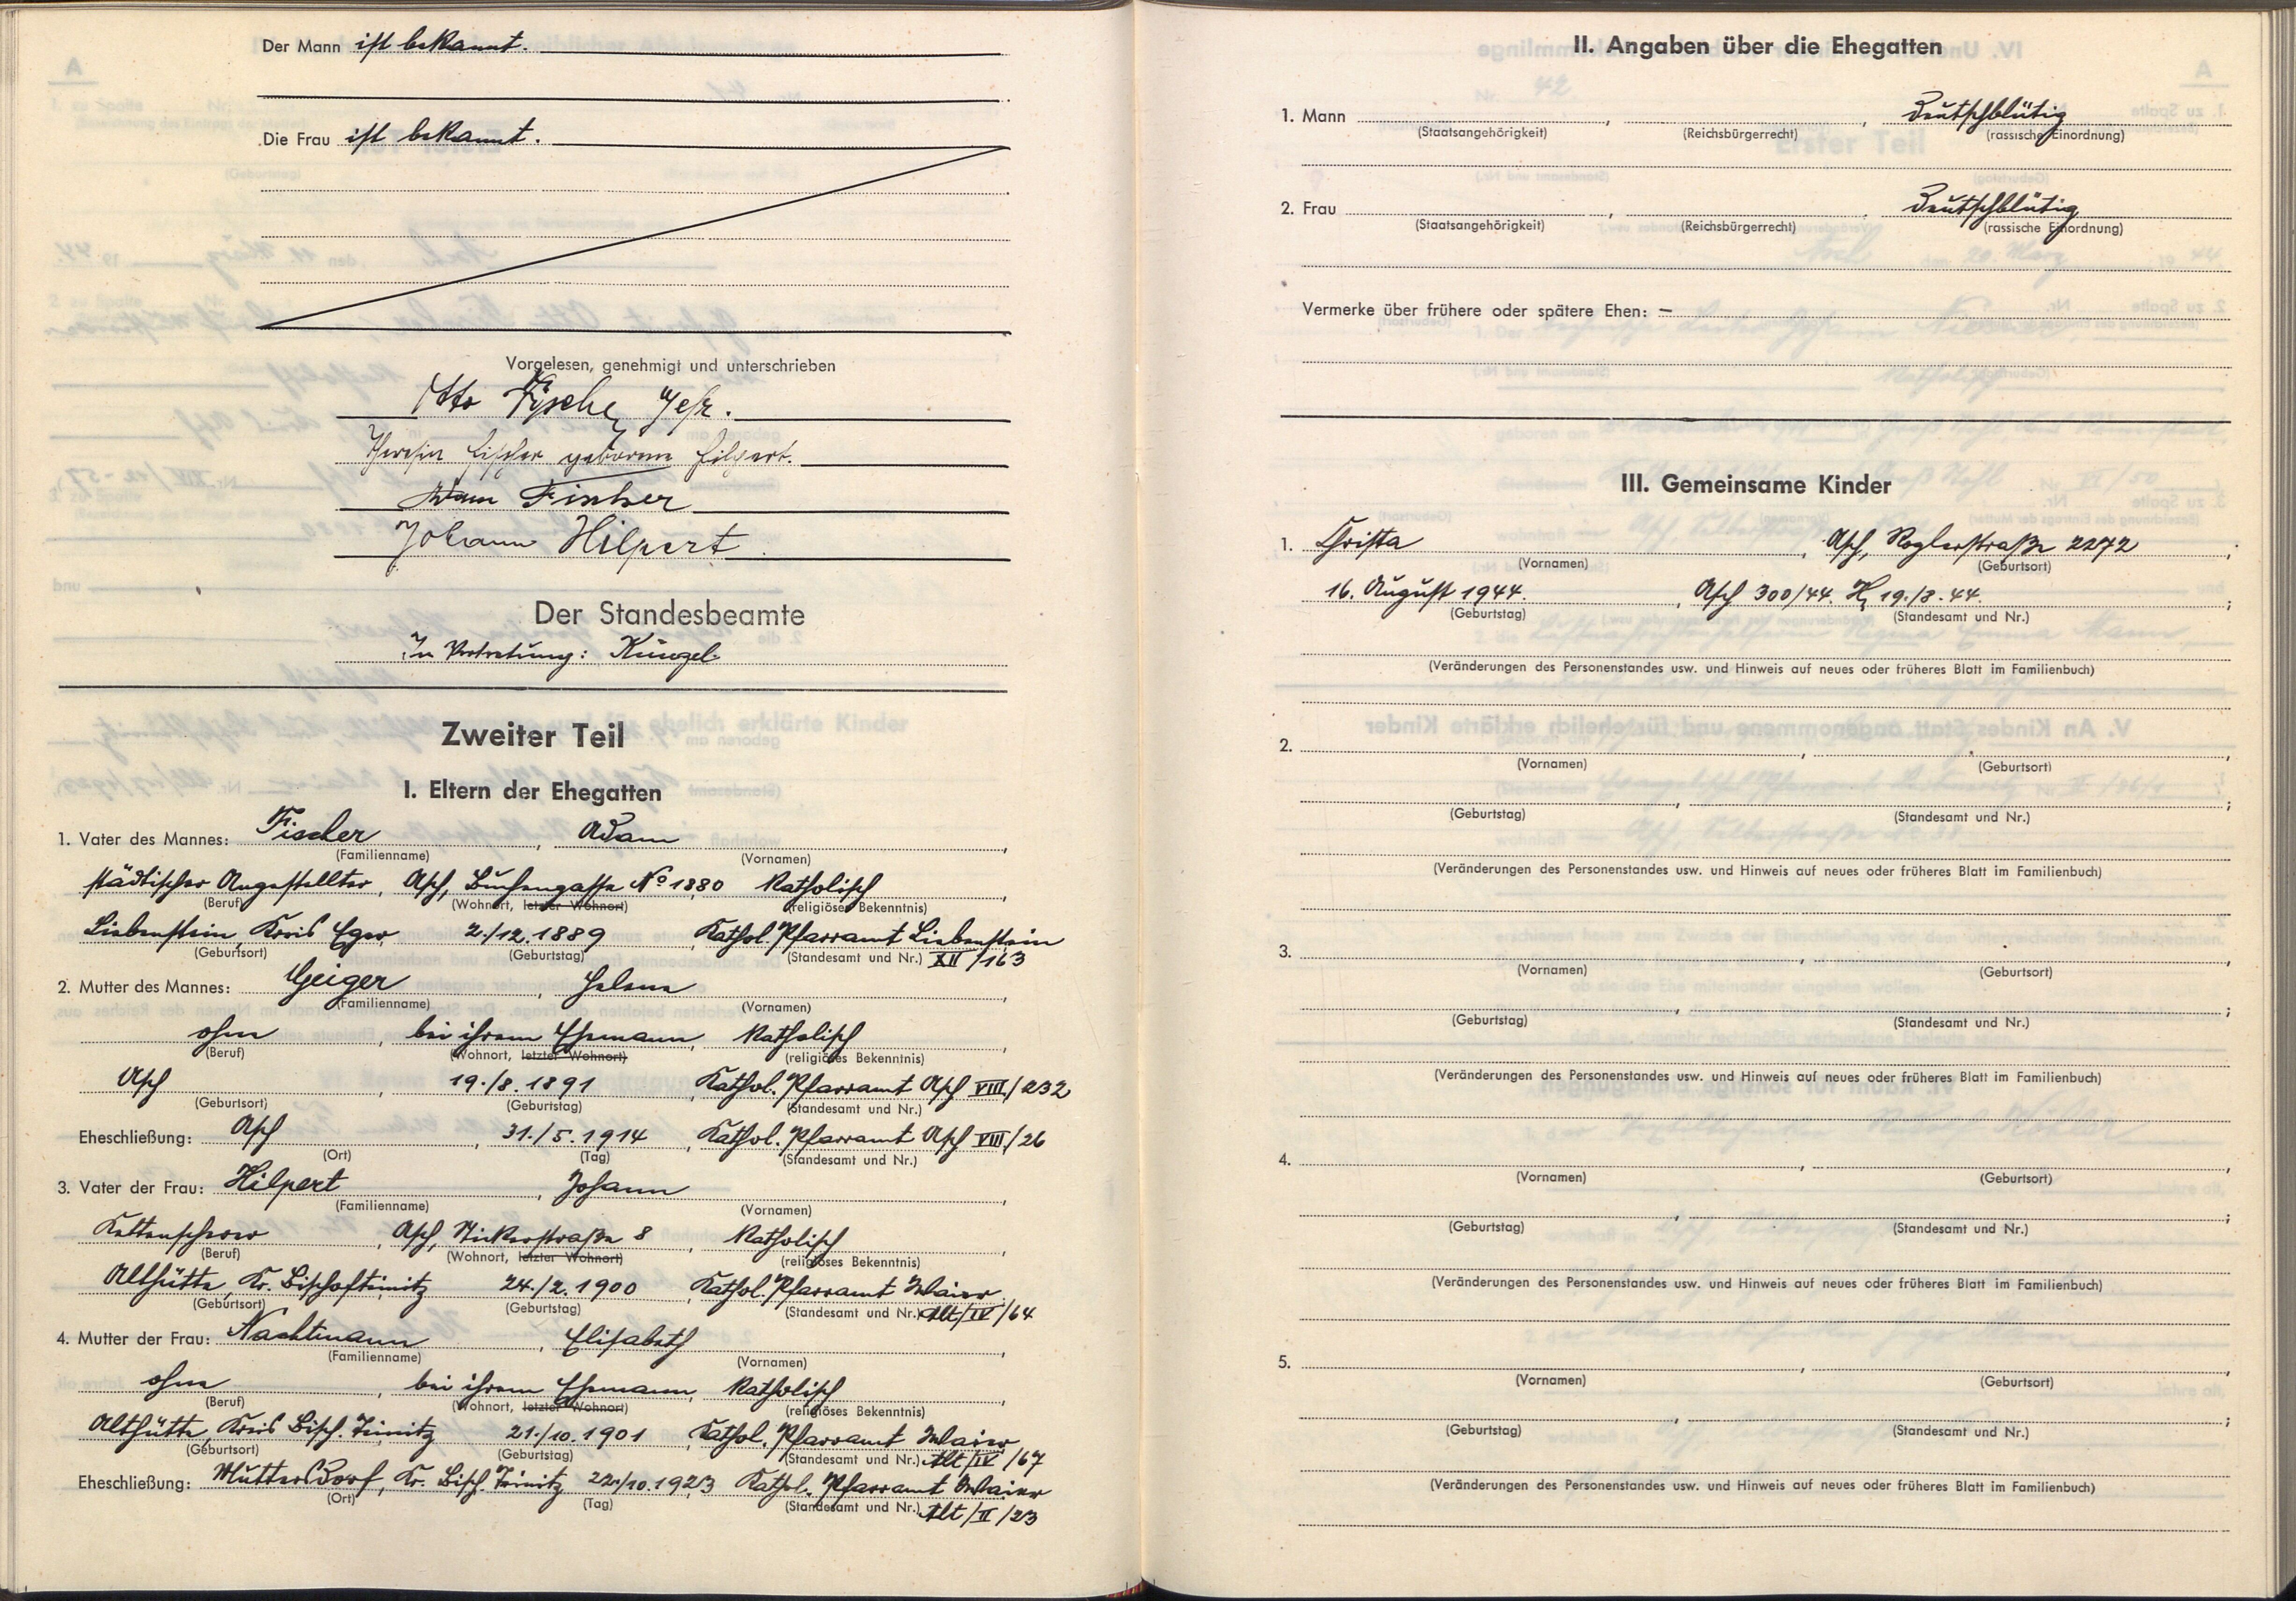 Der Mann ist bekannt.
Die Frau ist bekannt.
Vorgelesen, genehmigt und unterschrieben
Otto Fischer, Gefr.
Theresia Fischer geborene Hilpert.
Adam Fischer
Johann Hilpert
Der Standesbeamte
In Vertretung: Künzel
Zweiter Teil
I. Eltern der Ehegatten
1. Vater des Mannes: Fischer, Adam
(Familienname) (Vornamen)
städtischer Angestellter, Asch, Buchengasse No 1880 katholisch
(Beruf) (Wohnort, letzter Wohnort) (religiöses Bekenntnis)
Liebenstein, Kreis Eger 2./12.1889 Kathol. Pfarramt Liebenstein
(Geburtsort) (Geburtstag) (Standesamt und Nr.) XII/163
2. Mutter des Mannes: Geiger, Helene
(Familienname) (Vornamen)
ohne, bei ihrem Ehemann, katholisch
(Beruf) (Wohnort, letzter Wohnort) (religiöses Bekenntnis)
Asch, 19./8.1891 Kathol. Pfarramt Asch VIII/232
(Geburtsort) (Geburtstag) (Standesamt und Nr.)
Eheschließung: Asch, 31./5.1914, Kathol. Pfarramt Asch VIII/26
(Ort) (Tag) (Standesamt und Nr.)
3. Vater der Frau: Hilpert, Johann
(Familienname) (Vornamen)
Kettenscherer, Asch, Stickerstraße 8, katholisch
(Beruf) (Wohnort, letzter Wohnort) (religiöses Bekenntnis)
Althütte, Kr. Bischofteinitz 24./2.1900, Kathol. Pfarramt
(Geburtsort) (Geburtstag) (Standesamt und Nr.) Alt/IV/64
4. Mutter der Frau: Nachtmann, Elisabeth
(Familienname) (Vornamen)
ohne, bei ihrem Ehemann, katholisch
(Beruf) (Wohnort, letzter Wohnort) (religiöses Bekenntnis)
Althütte, Kreis Bisch. Teinitz 21./10.1901, Kathol. Pfarramt
(Geburtsort) (Geburtstag) (Standesamt und Nr.) Alt/IV/67
Eheschließung: Muttersdorf, Kr. Bisch. Teinitz 22./10.1923 Kathol. Pfarramt
(Ort) (Tag) (Standesamt und Nr.) Alt/II/23
II. Angaben über die Ehegatten
1. Mann , , deutschblütig
(Staatsangehörigkeit) (Reichsbürgerrecht) (rassische Einordnung)
2. Frau , , deutschblütig
(Staatsangehörigkeit) (Reichsbürgerrecht) (rassische Einordnung)
Vermerke über frühere oder spätere Ehen: –
III. Gemeinsame Kinder
1. Christa, Asch, Roglerstraße 2272;
(Vornamen) (Geburtsort)
16. August 1944., Asch 300/44. 19./8.44.;
(Geburtstag) (Standesamt und Nr.)
(Veränderungen des Personenstandes usw. und Hinweis auf neues oder früheres Blatt im Familienbuch)
2.
(Vornamen) (Geburtsort)
(Geburtstag) (Standesamt und Nr.)
(Veränderungen des Personenstandes usw. und Hinweis auf neues oder früheres Blatt im Familienbuch)
3.
(Vornamen) (Geburtsort)
(Geburtstag) (Standesamt und Nr.)
(Veränderungen des Personenstandes usw. und Hinweis auf neues oder früheres Blatt im Familienbuch)
4.
(Vornamen) (Geburtsort)
(Geburtstag) (Standesamt und Nr.)
(Veränderungen des Personenstandes usw. und Hinweis auf neues oder früheres Blatt im Familienbuch)
5.
(Vornamen) (Geburtsort)
(Geburtstag) (Standesamt und Nr.)
(Veränderungen des Personenstandes usw. und Hinweis auf neues oder früheres Blatt im Familienbuch)